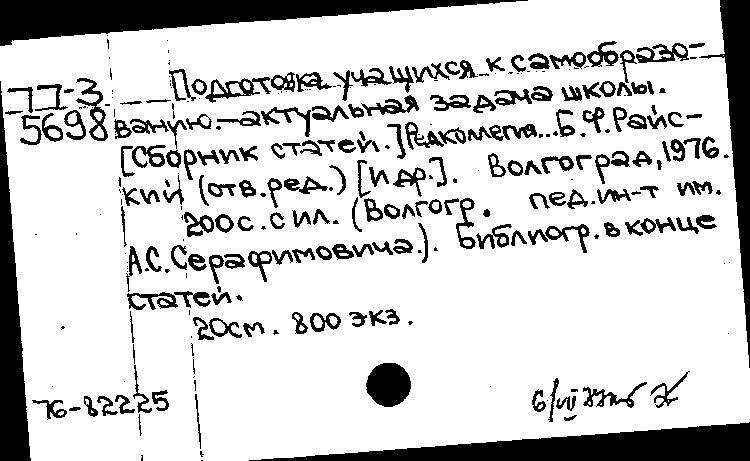 77-3 Подготовка учащихся к самообразо-
5698 ванию.-актуальная задача школы.
[Сборник статей.] Редколлегия...Б.Ф.Райс-
кий (отв.ред.) [и др.]. Волгоград,1976.
200с. с ил. (Волгогр. пед.ин-т им.
А.С.Серафимовича.). Библиогр. в конце
статей.
20см. 800 экз.
76-82225
6/VII